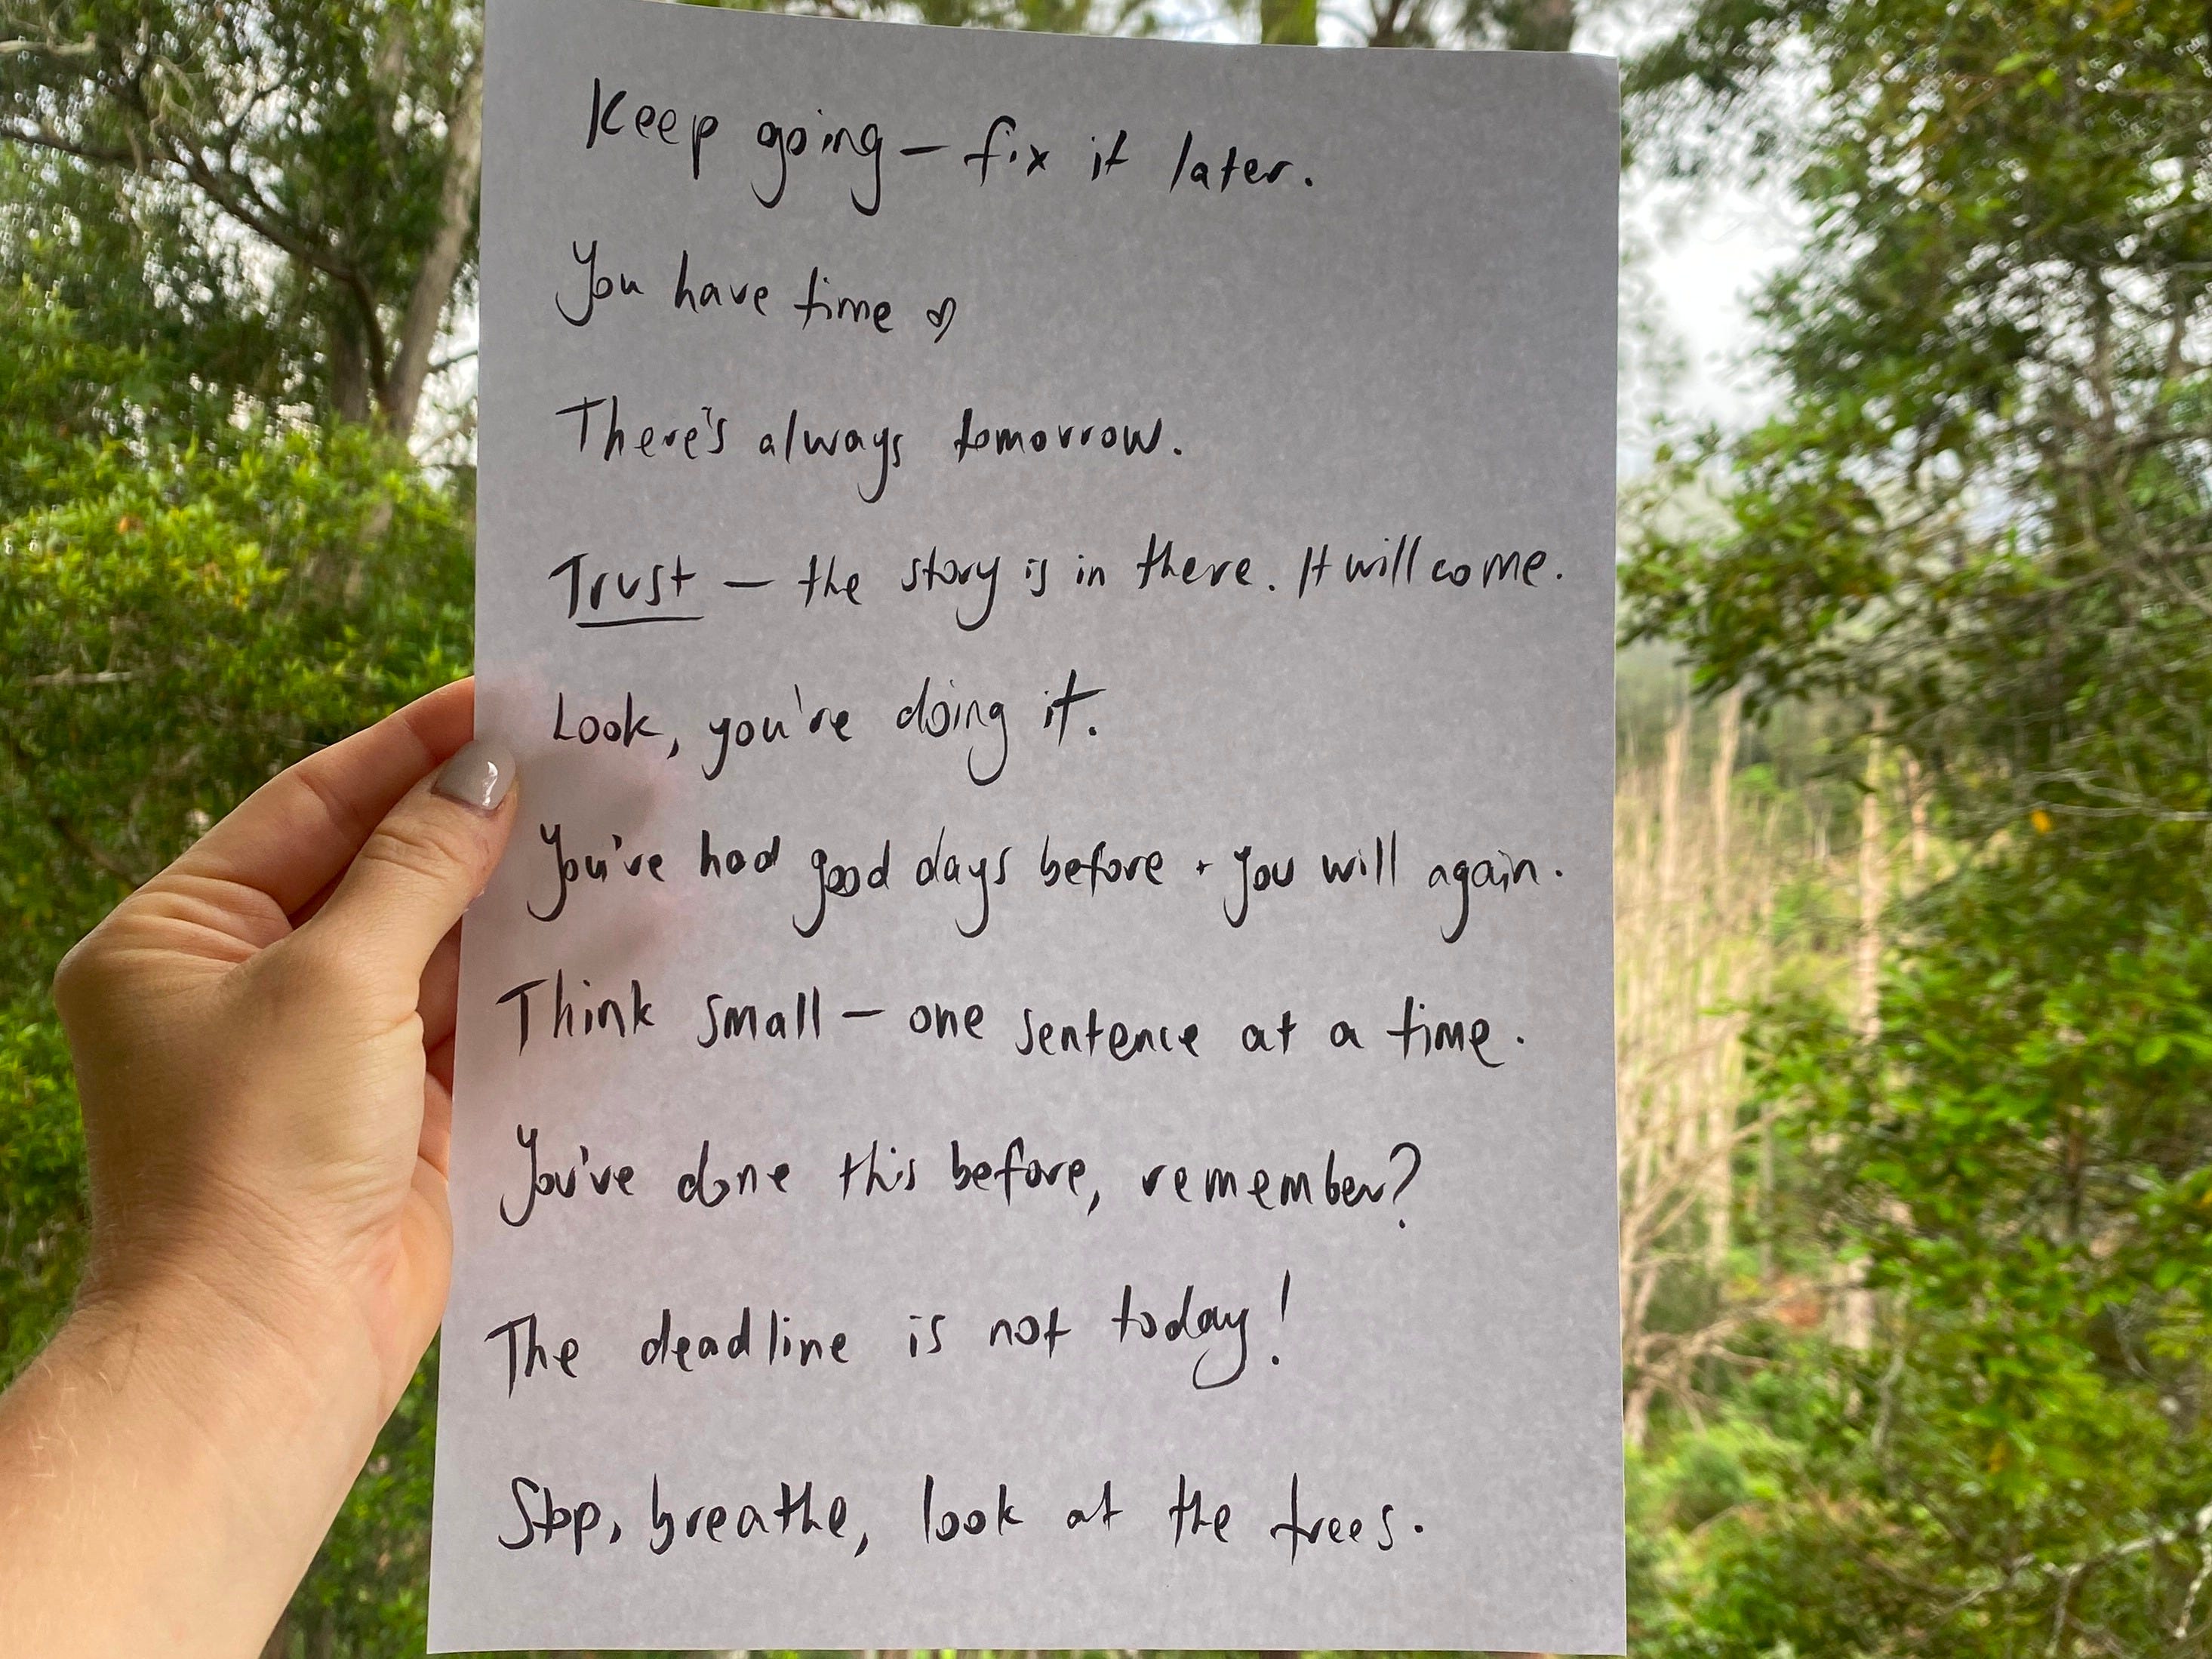 Keep going – fix it later.
You have time ♡
There's always tomorrow.
Trust – the story is in there. It will come.
Look, you're doing it.
You've had good days before + you will again.
Think small – one sentence at a time.
You've done this before, remember?
The deadline is not today!
Stop, breathe, look at the trees.